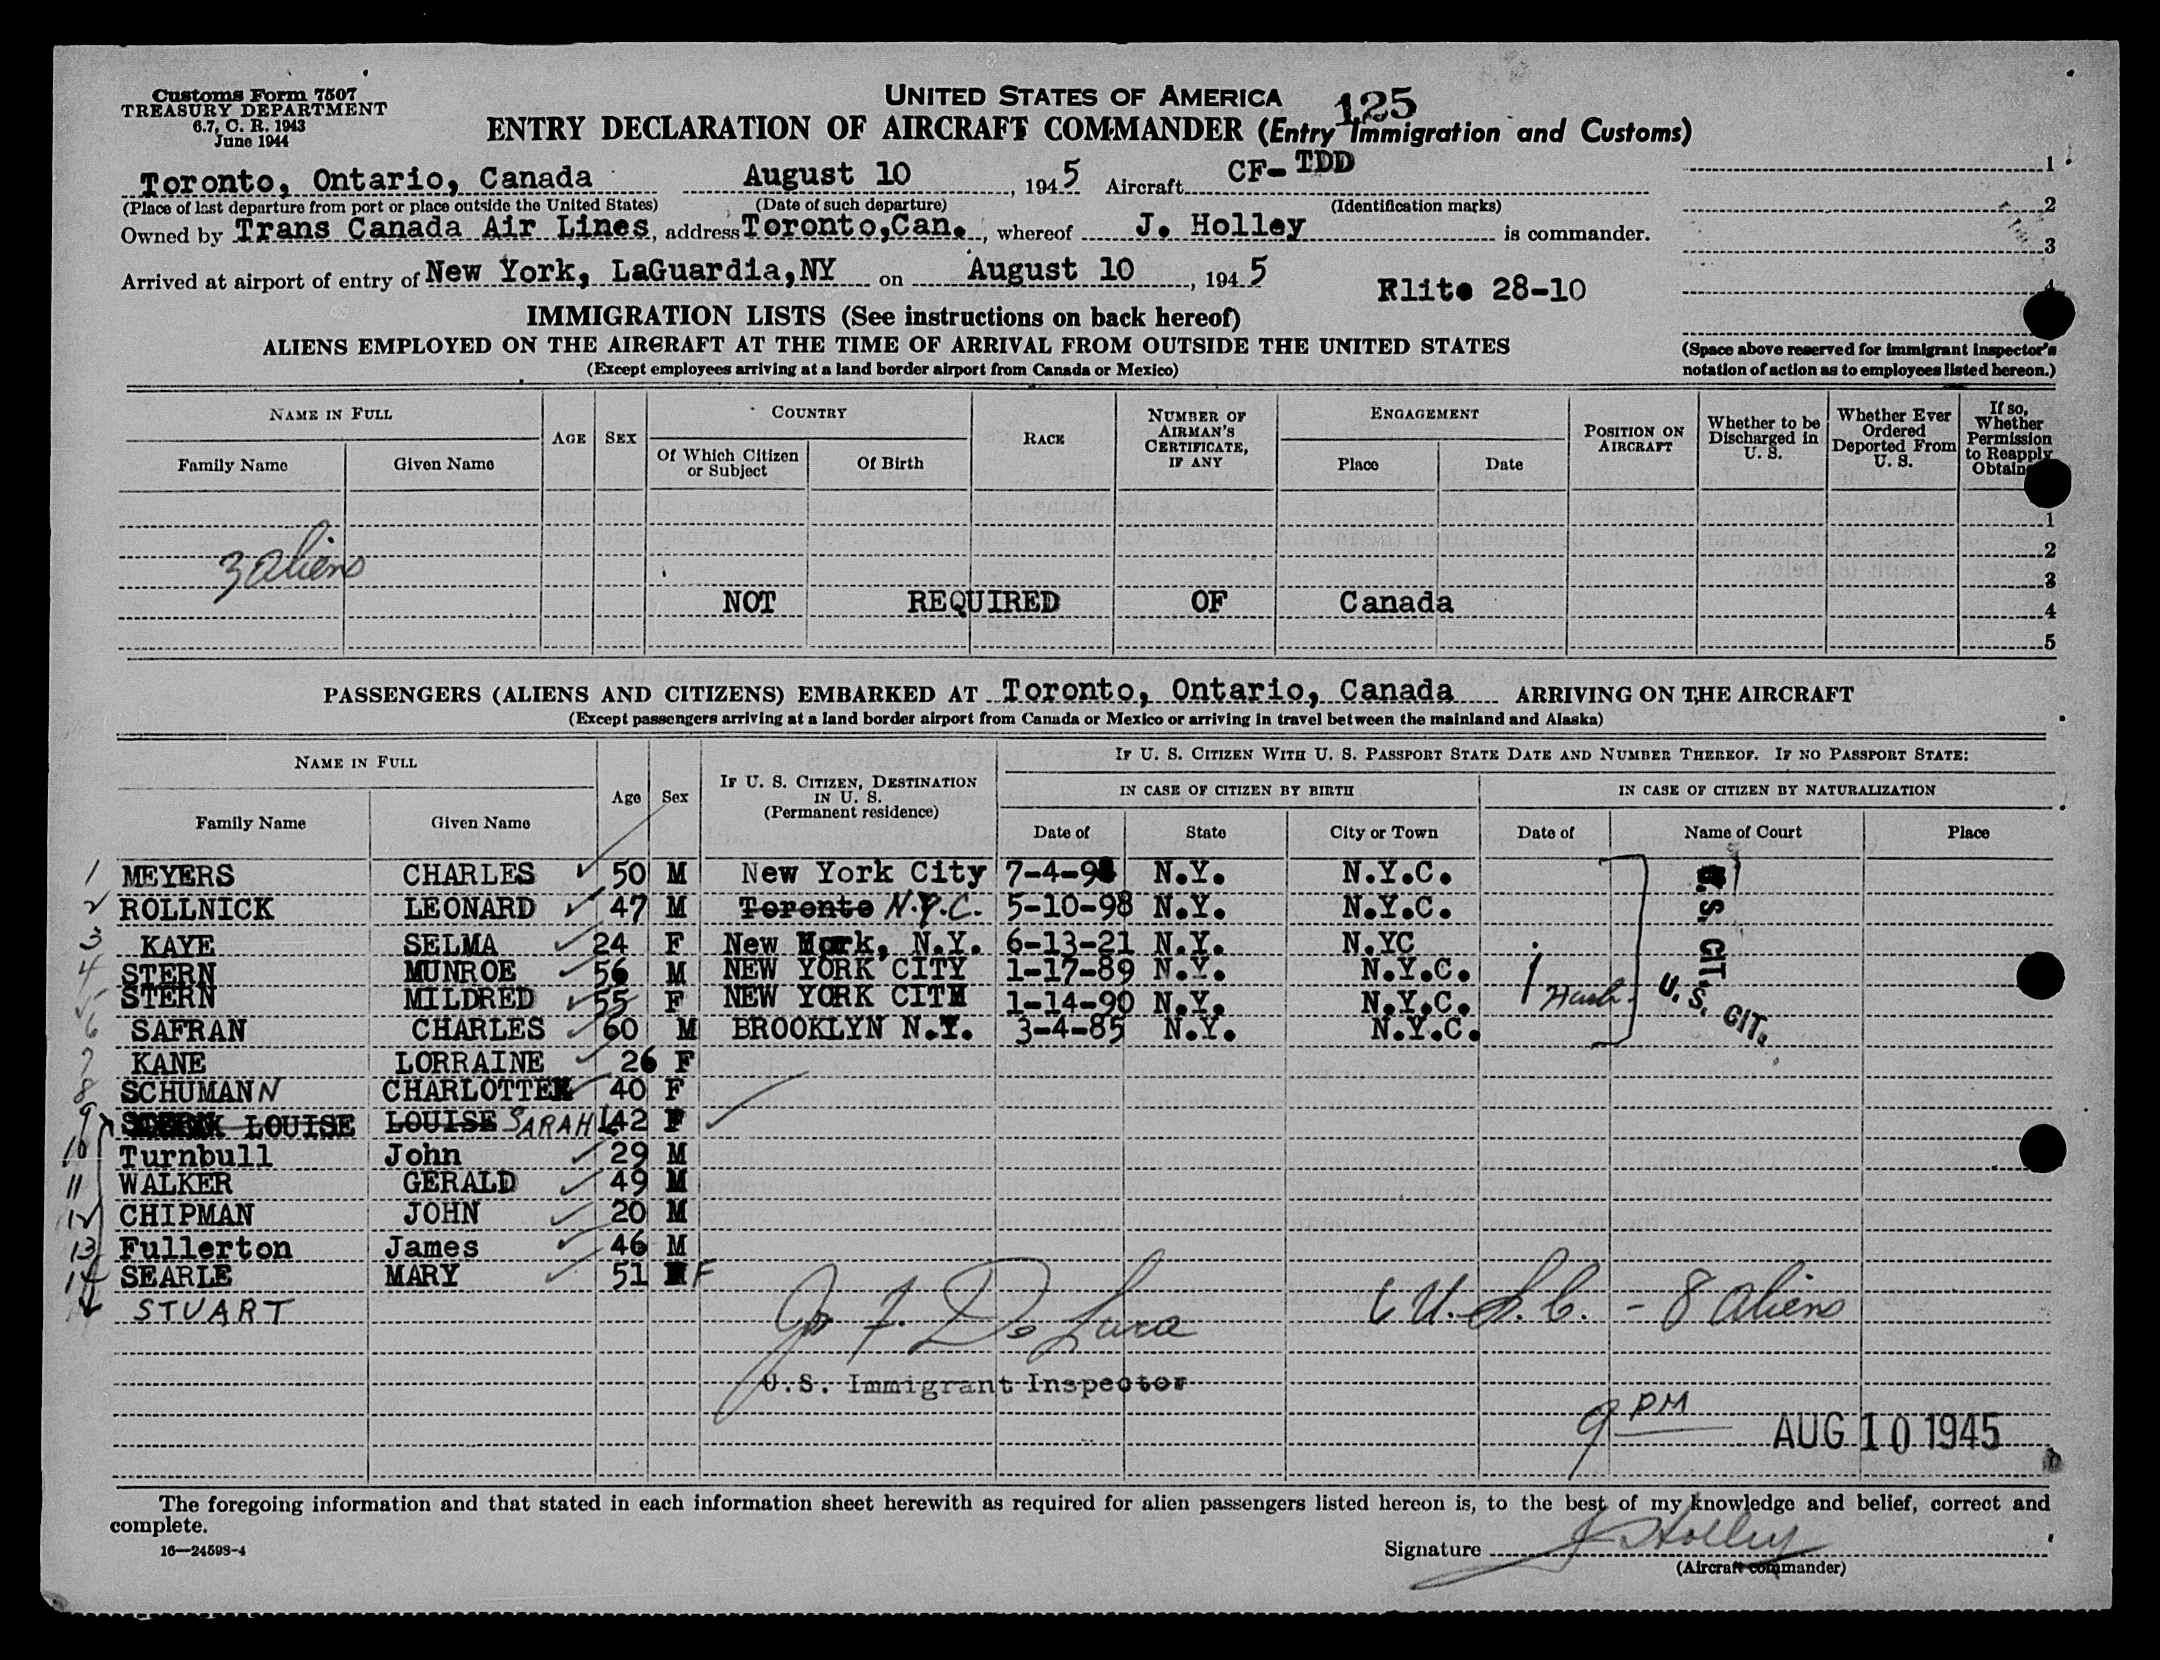 Customs Form 7507
TREASURY DEPARTMENT
6.7, C. R. 1943
June 1944
UNITED STATES OF AMERICA
125
ENTRY DECLARATION OF AIRCRAFT COMMANDER (Entry Immigration and Customs)
Toronto, Ontario, Canada August 10, 1945 Aircraft CF-TDD
(Place of last departure from port or place outside the United States) (Date of such departure) (Identification marks)
Owned by Trans Canada Air Lines, address Toronto,Can., whereof J. Holley is commander.
Arrived at airport of entry of New York, LaGuardia,NY on August 10, 1945
Flite 28-10
1
2
3
4
IMMIGRATION LISTS (See instructions on back hereof)
ALIENS EMPLOYED ON THE AIRCRAFT AT THE TIME OF ARRIVAL FROM OUTSIDE THE UNITED STATES
(Except employees arriving at a land border airport from Canada or Mexico)
(Space above reserved for immigrant inspector's notation of action as to employees listed hereon.)
NAME IN FULL AGE SEX COUNTRY RACE NUMBER OF AIRMAN'S CERTIFICATE, IF ANY ENGAGEMENT POSITION ON AIRCRAFT Whether to be Discharged in U. S. Whether Ever Ordered Deported From U. S. If so, Whether Permission to Reapply
Family Name Given Name Of Which Citizen or Subject Of Birth Place Date
1
2
3 aliens 3
NOT REQUIRED OF Canada 4
5
PASSENGERS (ALIENS AND CITIZENS) EMBARKED AT Toronto, Ontario, Canada ARRIVING ON THE AIRCRAFT
(Except passengers arriving at a land border airport from Canada or Mexico or arriving in travel between the mainland and Alaska)
NAME IN FULL Age Sex IF U. S. CITIZEN, DESTINATION IN U. S. (Permanent residence) IF U. S. CITIZEN WITH U. S. PASSPORT STATE DATE AND NUMBER THEREOF. IF NO PASSPORT STATE:
IN CASE OF CITIZEN BY BIRTH IN CASE OF CITIZEN BY NATURALIZATION
Family Name Given Name Date of State City or Town Date of Name of Court Place
1 MEYERS CHARLES 50 M New York City N.Y. N.Y.C.
2 ROLLNICK LEONARD 47 M Toronto N.Y.C. 5-10-98 N.Y. N.Y.C.
3 KAYE SELMA 24 F New York, N.Y. 6-13-21 N.Y. N.YC
4 STERN MUNROE 56 M NEW YORK CITY 1-17-89 N.Y. N.Y.C.
5 STERN MILDRED 55 F NEW YORK CITY 1-14-90 N.Y. N.Y.C.
6 SAFRAN CHARLES 60 M BROOKLYN N.Y. 3-4-85 N.Y. N.Y.C.
U.S. CIT.
U.S. CIT.
7 KANE LORRAINE 26 F
8 SCHUMANN CHARLOTTE 40 F
9 LOUISE LOUISE SARAH L 42 F
10 Turnbull John 29 M
11 WALKER GERALD 49 M
12 CHIPMAN JOHN 20 M
13 Fullerton James 46 M
14 SEARLE MARY 51 F
STUART
Jos F. De Luca
6 U.S.C. - 8 aliens
U.S. Immigrant Inspector
9 PM AUG 10 1945
The foregoing information and that stated in each information sheet herewith as required for alien passengers listed hereon is, to the best of my knowledge and belief, correct and
complete.
16—24593-4
Signature J Holley
(Aircraft commander)